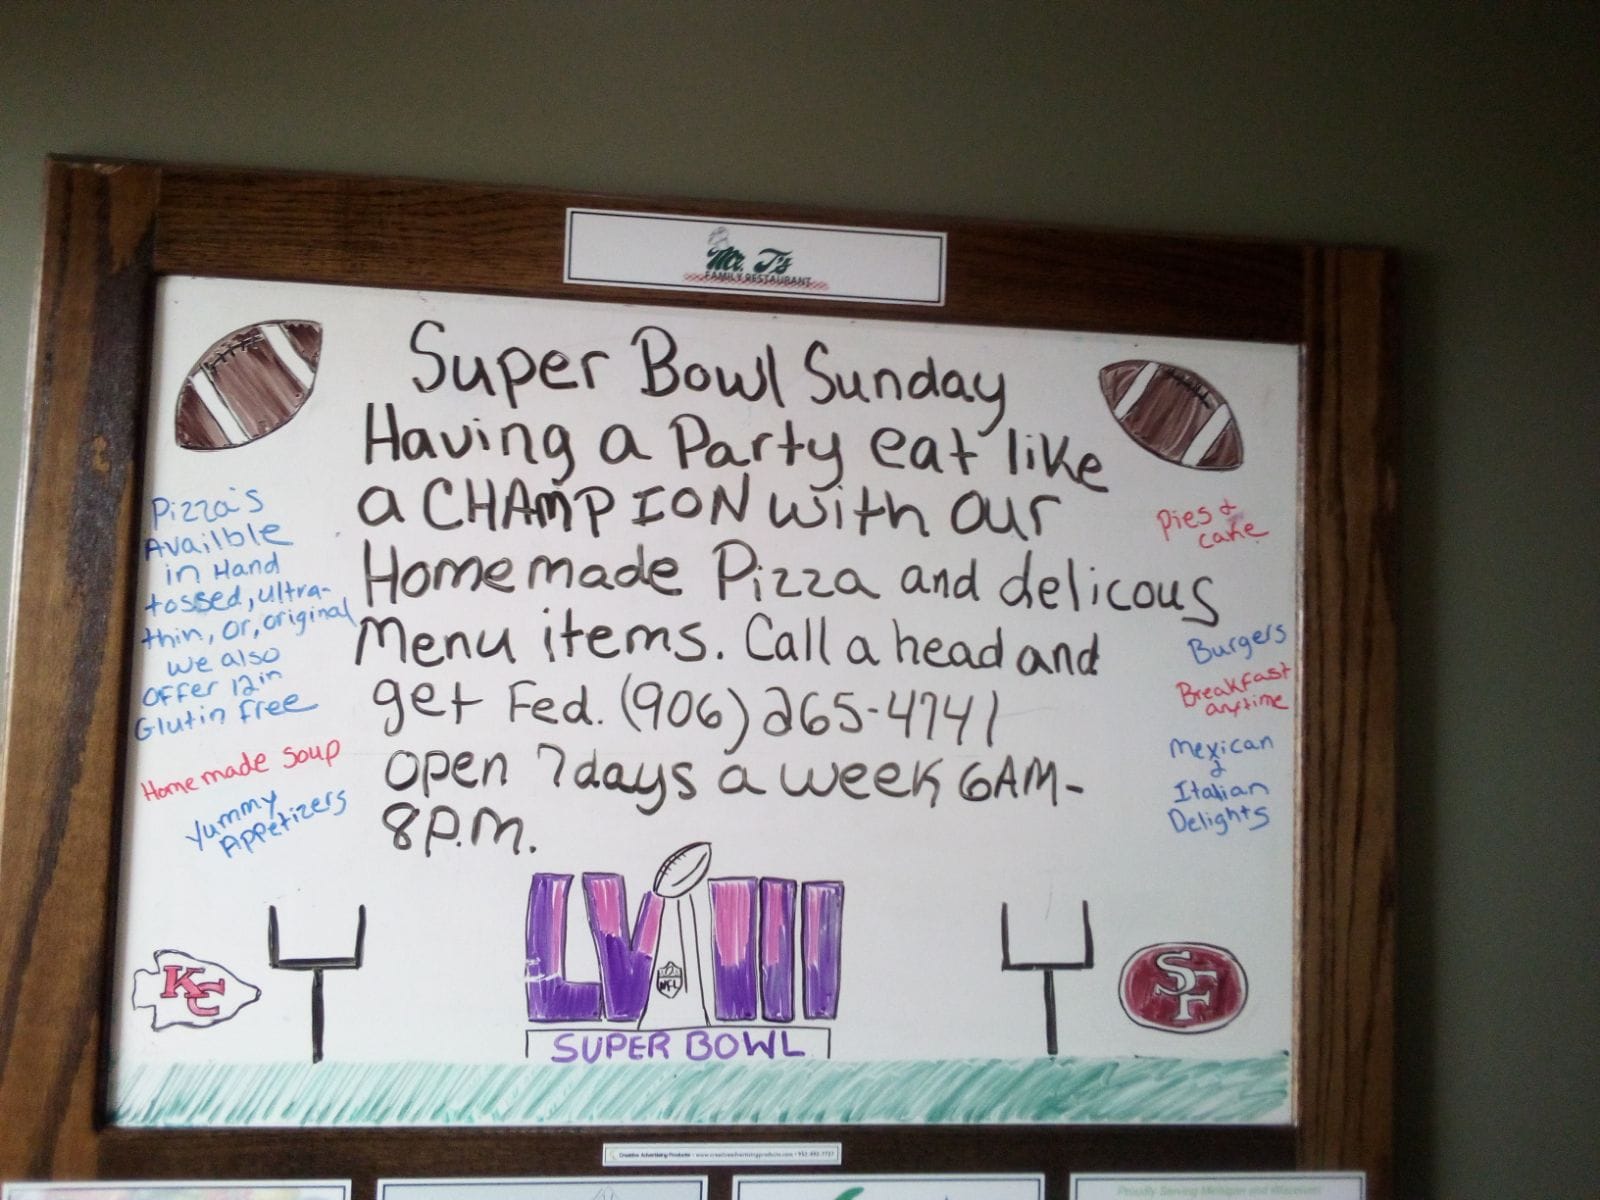 Mr. T's
FAMILY RESTAURANT
Super Bowl Sunday
Having a Party eat like
a CHAMPION with our
Homemade Pizza and delicous
Menu items. Call a head and
get Fed. (906) 265-4741
open 7days a week 6AM-
8P.M.
Pizza's
Availble
in Hand
tossed, ultra-
thin, Or, original
we also
OFFer 12in
Glutin Free
Homemade Soup
Yummy
Appetizers
Pies &
cake
Burgers
BreakFast
anytime
Mexican
&
Italian
Delights
KC
LVIII
NFL
SUPER BOWL
SF
Creative Advertising Products • www.creativeadvertisingproducts.com •
Proudly Serving Michigan and Wisconsin